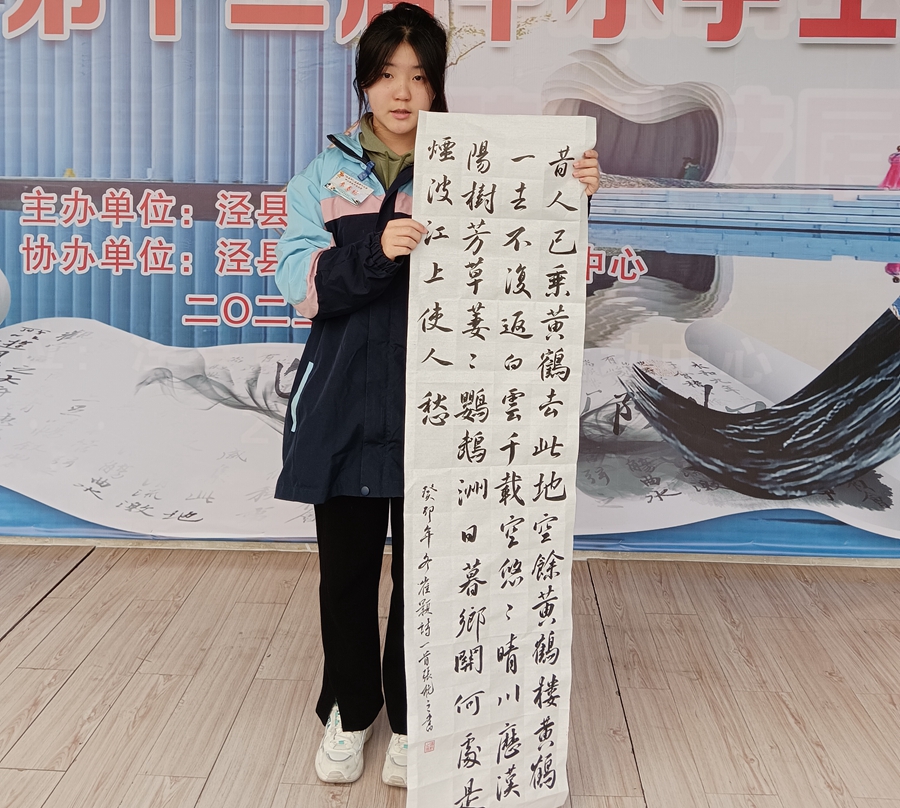 届中小学生
主办单位：泾县
协办单位：泾县
中心
二〇二
昔人已乘黄鶴去此地空餘黄鶴樓黄鶴
一去不復返白雲千載空悠〻晴川歷漢
陽樹芳草萋〻鸚鵡洲日暮鄉關何處是
煙波江上使人愁
癸卯年冬崔顥詩一首張書